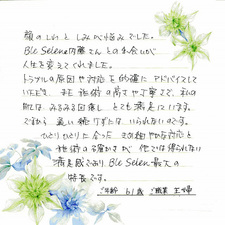 顔のしわとしみが悩みでした。
Ble Selene内藤さんとの出会いが
人生を変えてくれました。
トラブルの原因や対応を的確にアドバイスして
いただき、また施術の高さや丁寧さで、私の
肌はみるみる回復しとても満足しています。
もう 通い続けずには いられないのです。
ひとりひとりに合った きめ細やかな対応と
施術の確かさが 他では得られない
満足感であり、Ble Selene最大の
特長です。
ご年齢 61歳 ご職業 主婦